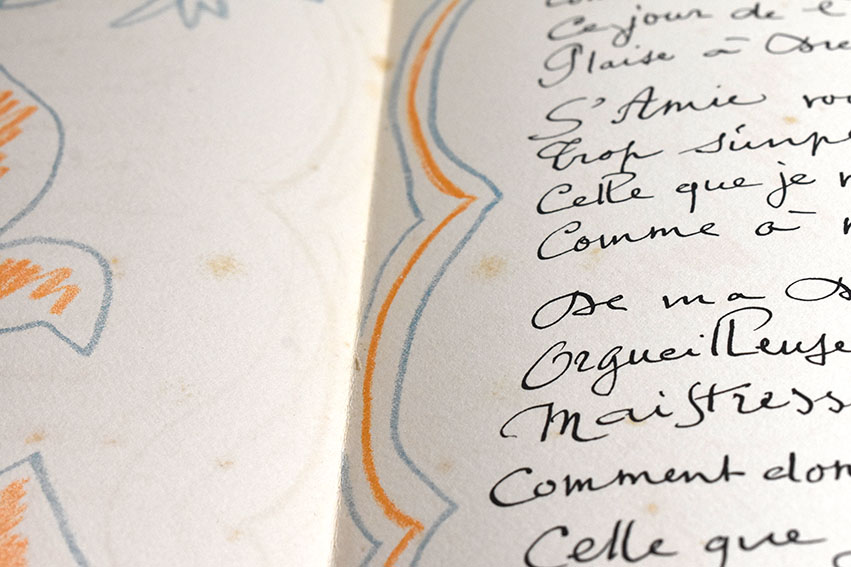 Ce jour de l
Plaise à
S'Amie
Trop
Celle que je
Comme à
De ma
Orgueilleuse
Maistress
Comment don
Celle que